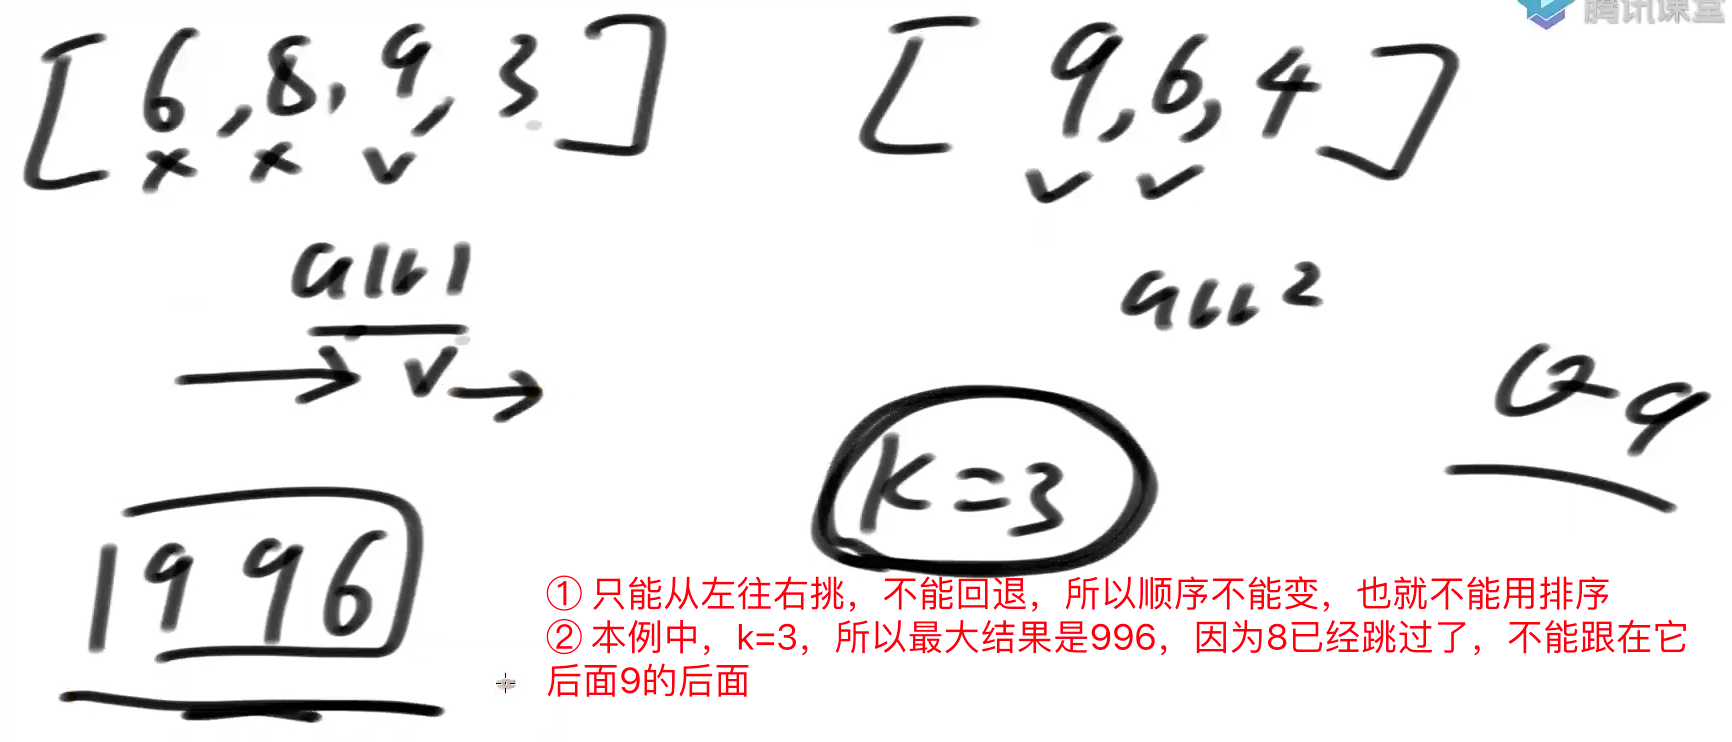 腾讯课堂
[6,8,9,3] [9,6,4]
x x v v v
arr1 arr2
v v
0-9
k=3
1996
① 只能从左往右挑，不能回退，所以顺序不能变，也就不能用排序
② 本例中，k=3，所以最大结果是996，因为8已经跳过了，不能跟在它
后面9的后面